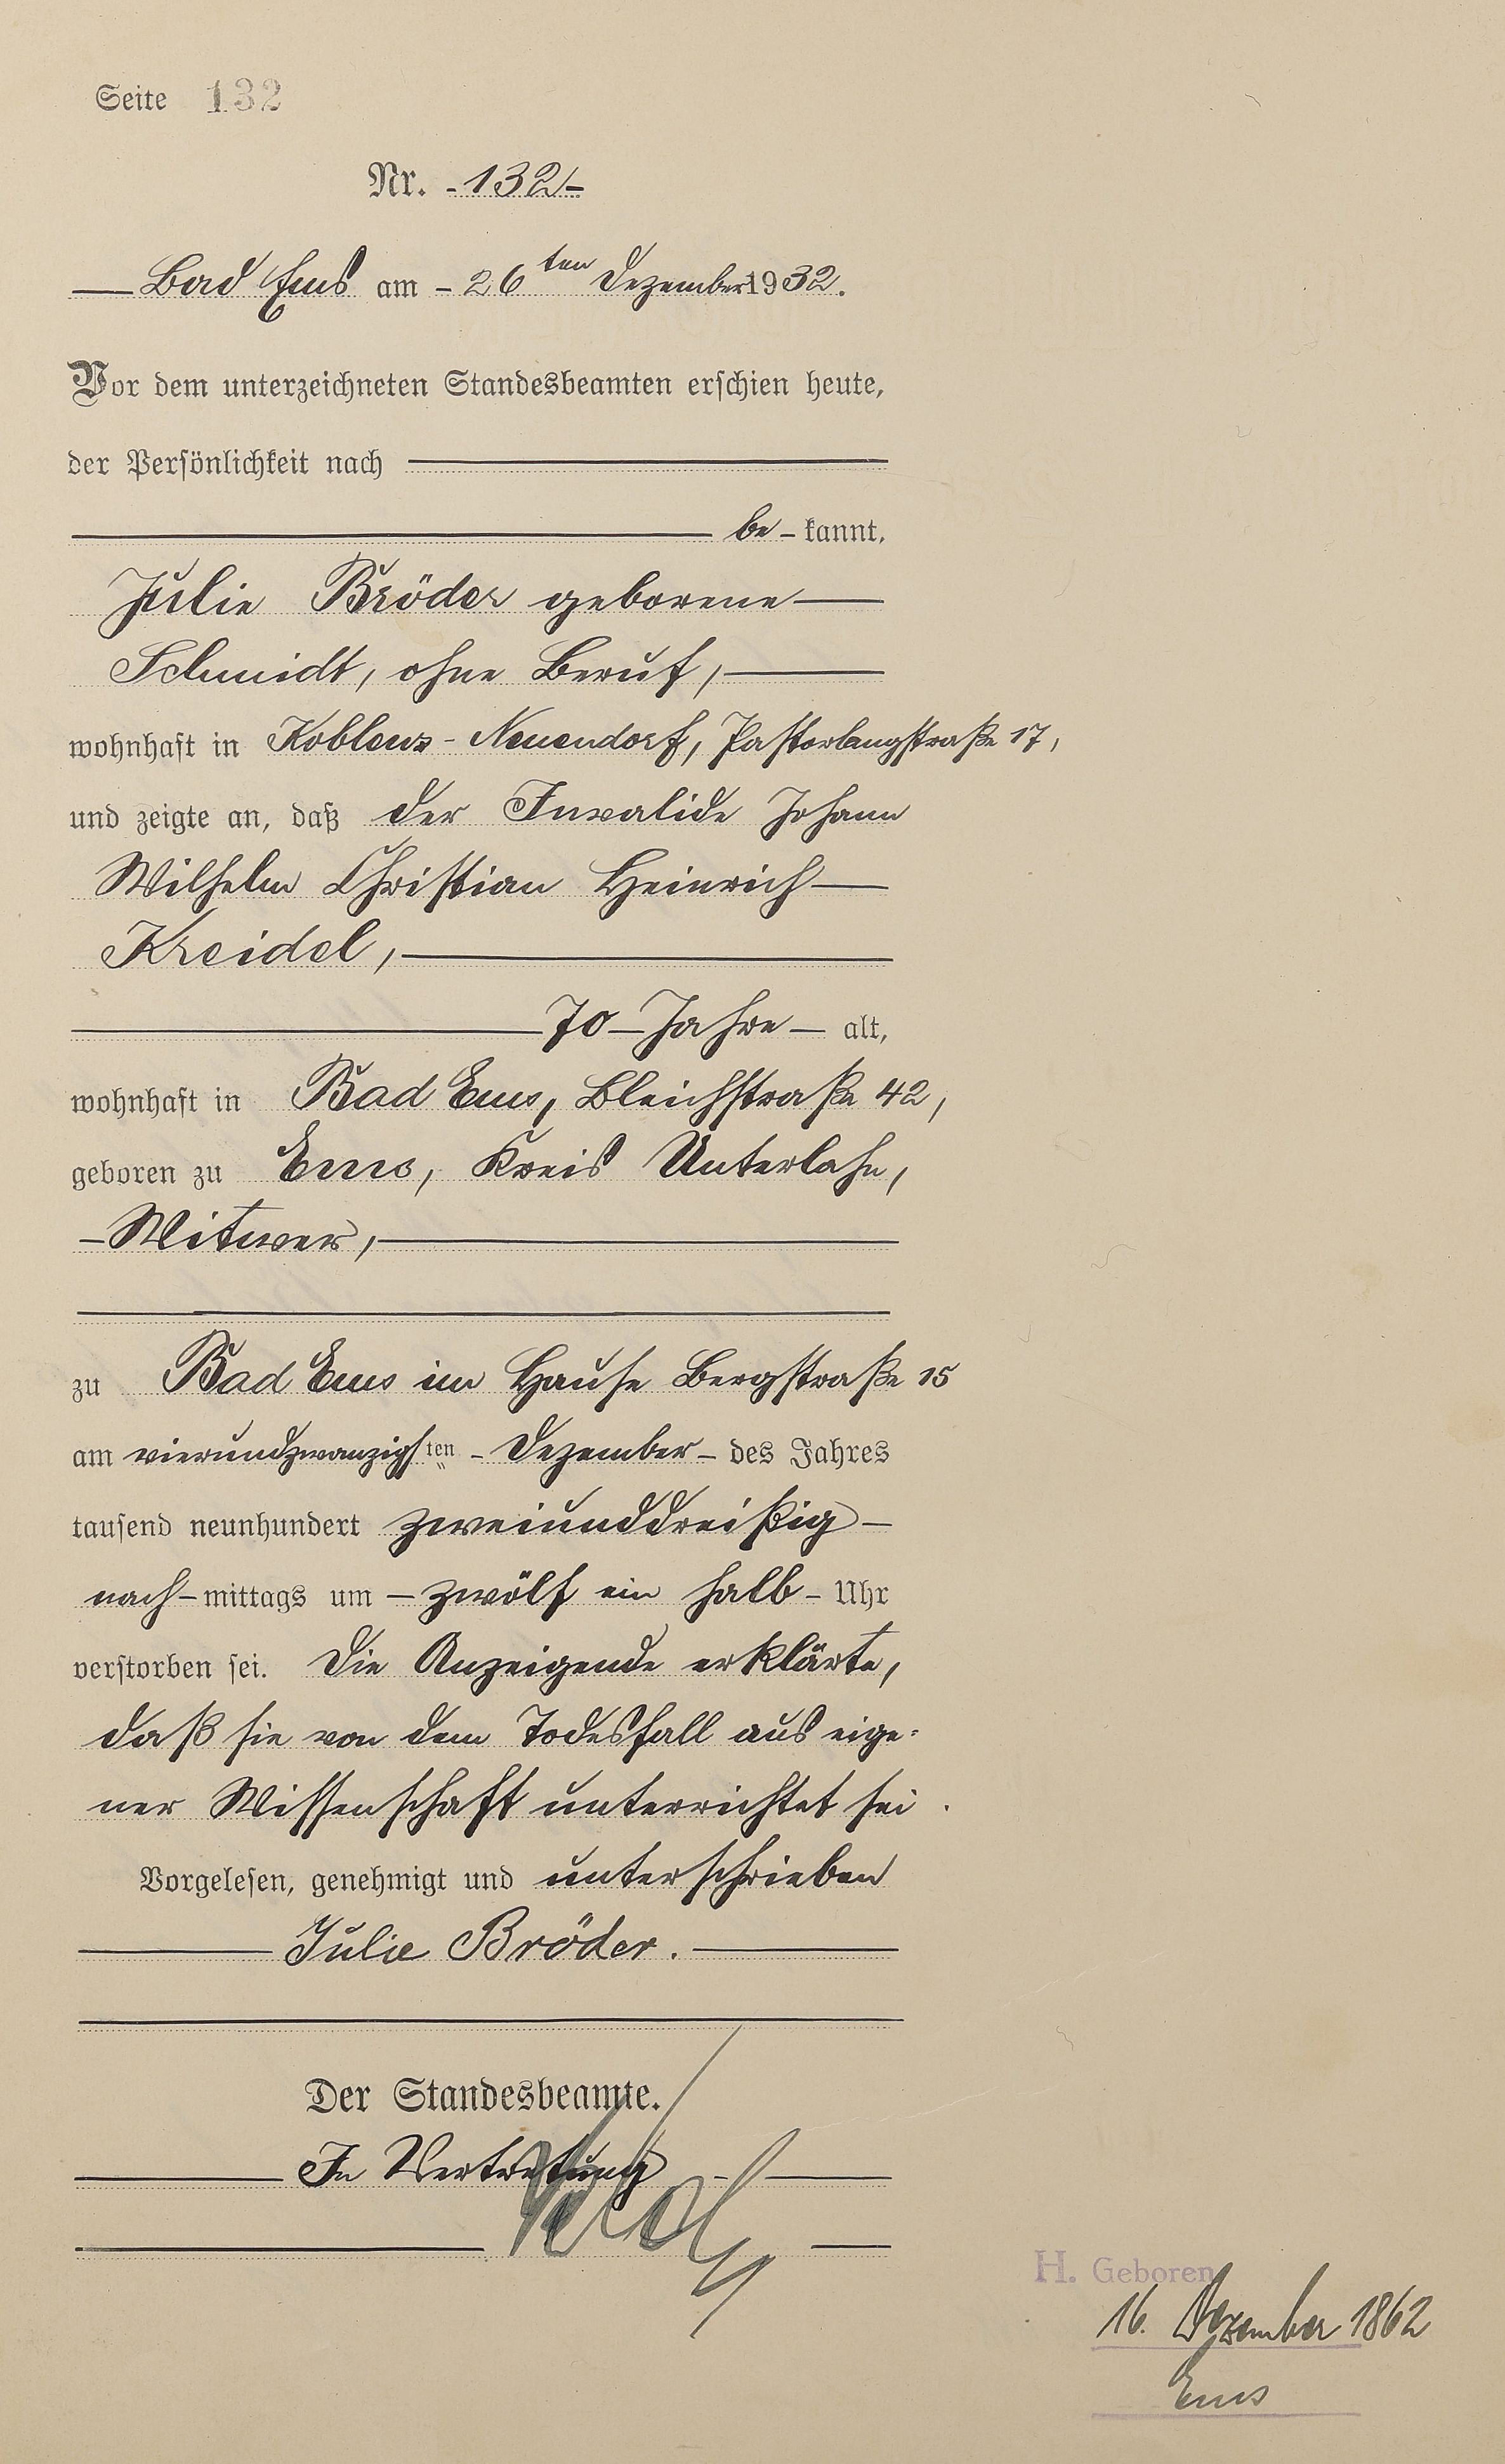 Seite 132
Nr. -132-
Bad Ems am - 26ten Dezember 1932.
Vor dem unterzeichneten Standesbeamten erschien heute,
der Persönlichkeit nach
be - kannt,
Julie Bröder geborene
Schmidt, ohne Beruf,
wohnhaft in Koblenz - Neuendorf, Pastorlangstraße 17,
und zeigte an, daß der Invalide Johann
Wilhelm Christian Heinrich
Kreidel,
70 - Jahre - alt,
wohnhaft in Bad Ems, Bleichstraße 42,
geboren zu Ems, Kreis Unterlahn,
- Witwer,
zu Bad Ems im Hause Bergstraße 15
am vierundzwanzigsten - Dezember - des Jahres
tausend neunhundert zweiunddreißig -
nach - mittags um - zwölf ein halb - Uhr
verstorben sei. Die Anzeigende erklärte,
daß sie von dem Todesfall aus eige-
ner Wissenschaft unterrichtet sei.
Vorgelesen, genehmigt und unterschrieben
Julie Bröder.
Der Standesbeamte.
In Vertretung
H. Geboren
16. Dezember 1862
Ems